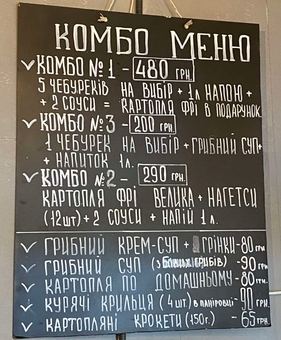 КОМБО МЕНЮ
КОМБО №1 - 480 ГРН.
5 ЧЕБУРЕКІВ НА ВИБІР + 1Л НАПОЮ +
+ 2 СОУСИ = КАРТОПЛЯ ФРІ В ПОДАРУНОК
КОМБО №3 - 200 ГРН.
1 ЧЕБУРЕК НА ВИБІР + ГРИБНИЙ СУП +
+ НАПИТОК 1Л.
КОМБО №2 - 290 ГРН.
КАРТОПЛЯ ФРІ ВЕЛИКА + НАГЕТСИ
(12шт) + 2 СОУСИ + НАПІЙ 1Л.
ГРИБНИЙ КРЕМ-СУП + ГРІНКИ - 80 грн
ГРИБНИЙ СУП (з ГРИБІВ) - 90 грн
КАРТОПЛЯ ПО ДОМАШНЬОМУ - 80 грн.
КУРЯЧІ КРИЛЬЦЯ (4 шт) в паніровці - 90 грн
КАРТОПЛЯНІ КРОКЕТИ (150г.) - 65 грн.